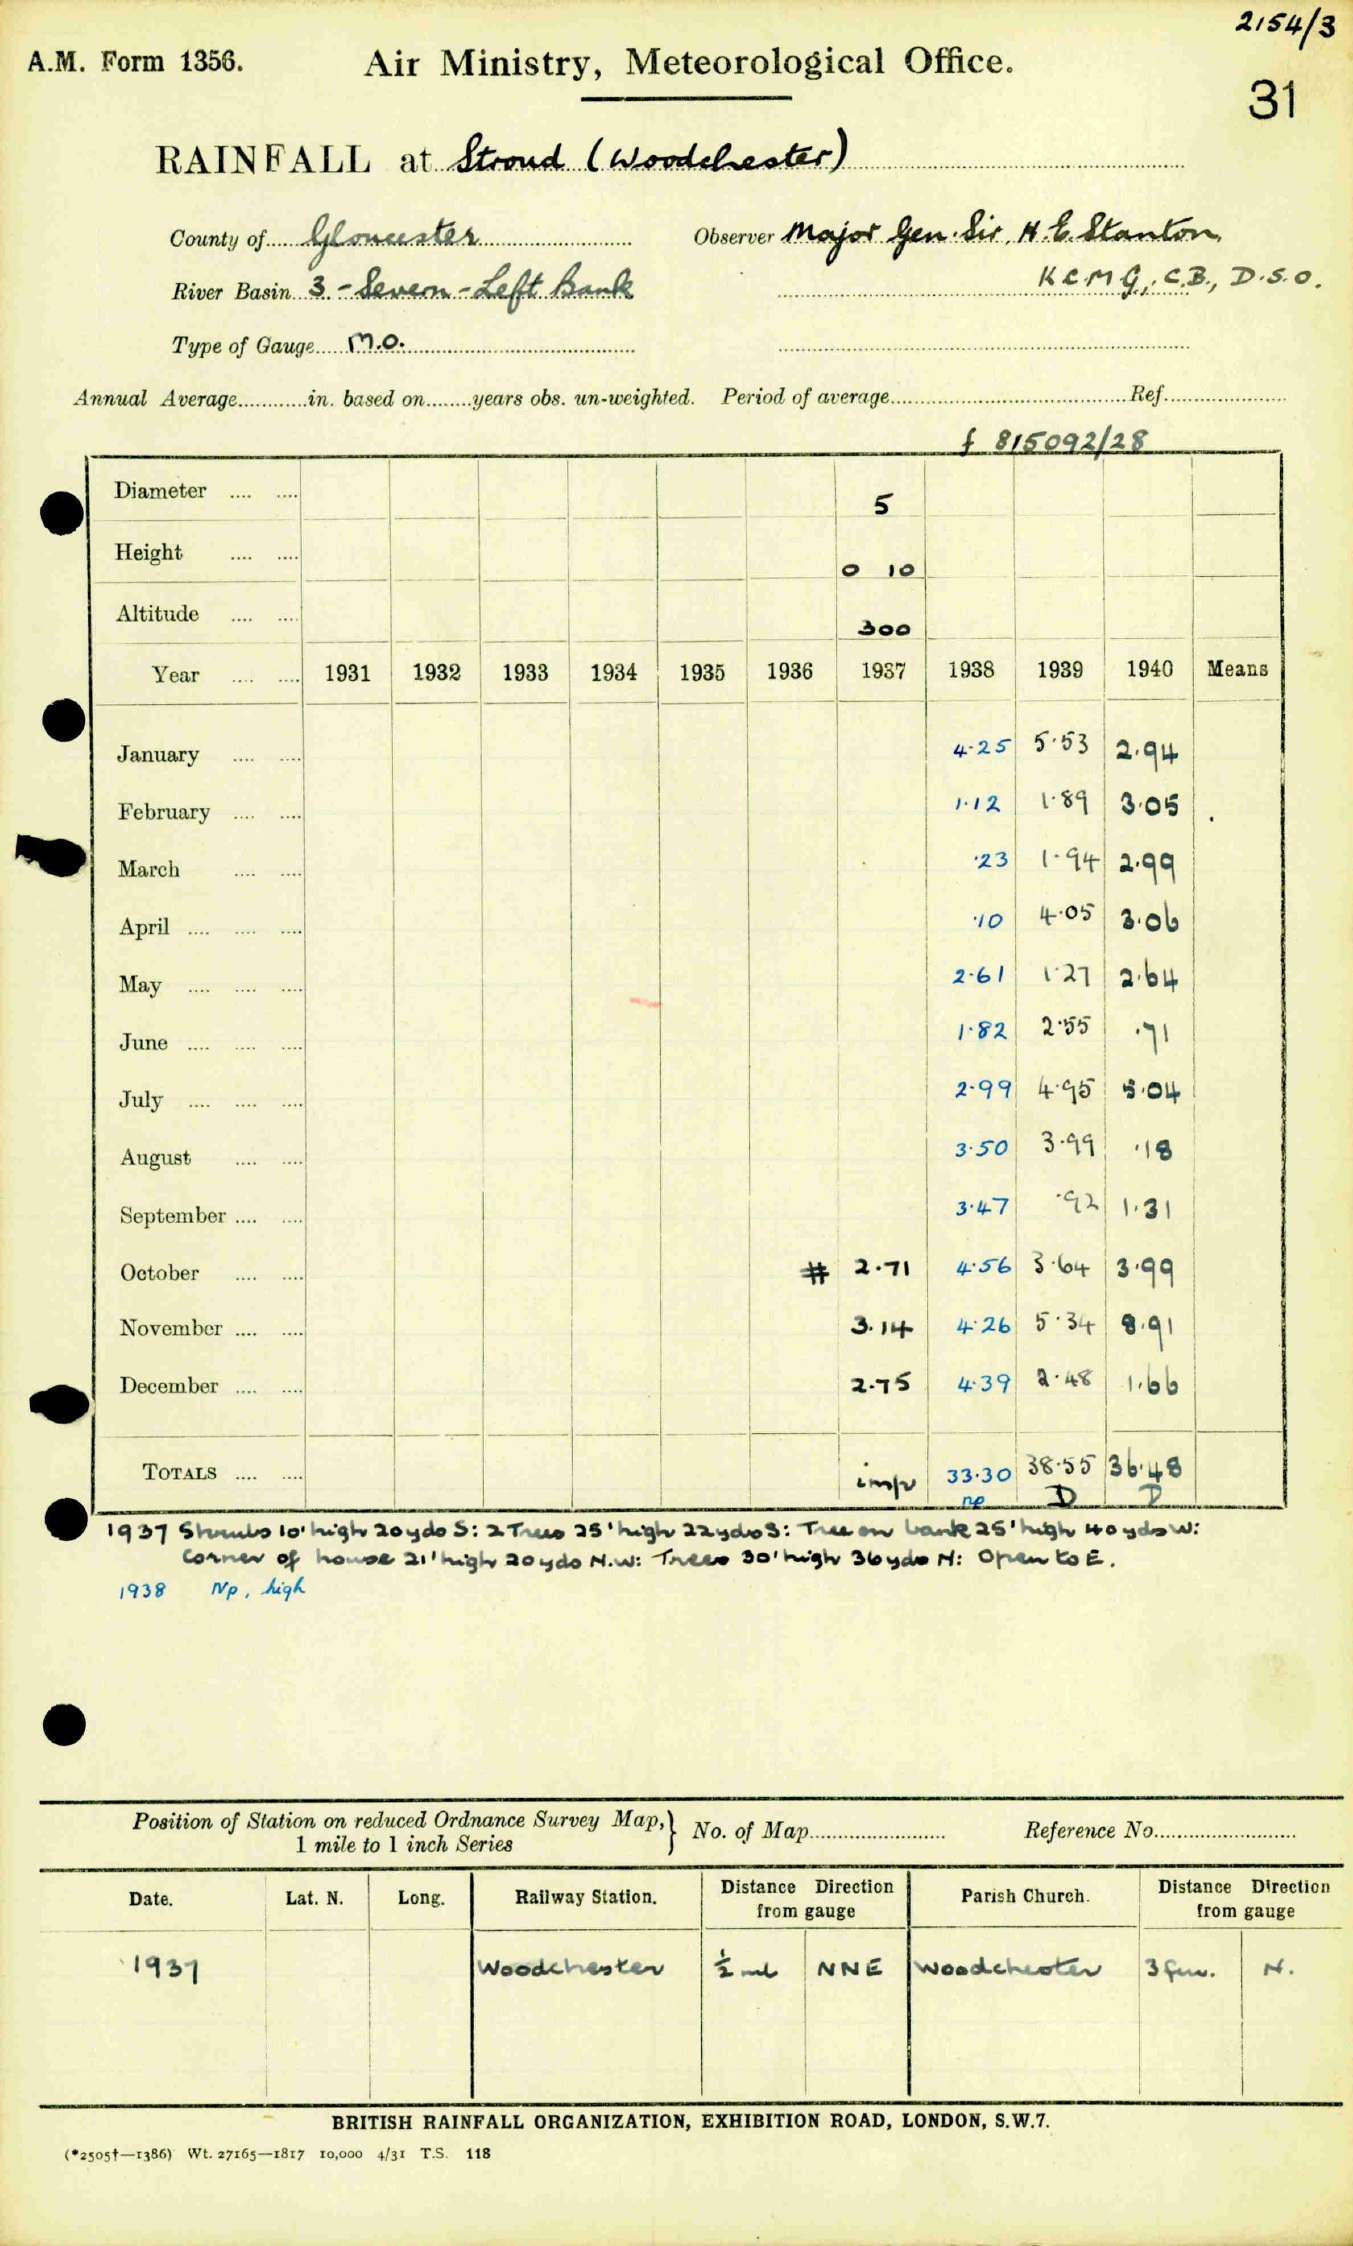 2154/3
A.M. Form 1356. Air Ministry, Meteorological Office.
31
RAINFALL at Stroud (Woodchester)
County of Gloucester Observer Major Gen. Sir. H. E. Stanton,
River Basin 3 - Severn - Left Bank K C M G, C.B., D.S.O.
Type of Gauge M.O.
Annual Average in. based on years obs. un-weighted. Period of average Ref.
f 815092/28
Diameter 5
Height 0 10
Altitude 300
Year 1931 1932 1933 1934 1935 1936 1937 1938 1939 1940 Means
January 4.25 5.53 2.94
February 1.12 1.89 3.05
March .23 1.94 2.99
April .10 4.05 3.06
May 2.61 1.27 2.64
June 1.82 2.55 .71
July 2.99 4.95 5.04
August 3.50 3.99 .18
September 3.47 .92 1.31
October # 2.71 4.56 3.64 3.99
November 3.14 4.26 5.34 8.91
December 2.75 4.39 2.48 1.66
TOTALS imp 33.30 38.55 36.48
np D D
1937 Shrubs 10' high 20 yds S: 2 Trees 25' high 22 yds S: Tree on bank 25' high 40 yds W:
Corner of house 21' high 20 yds N.W: Trees 30' high 36 yds N: Open to E.
1938 Np, high
Position of Station on reduced Ordnance Survey Map, } No. of Map Reference No.
1 mile to 1 inch Series
Date. Lat. N. Long. Railway Station. Distance Direction from gauge Parish Church. Distance Direction from gauge
1937 Woodchester ½ ml NNE Woodchester 3 fur. N.
BRITISH RAINFALL ORGANIZATION, EXHIBITION ROAD, LONDON, S.W.7.
(*2505†—1386) Wt. 27165—1817 10,000 4/31 T.S. 118